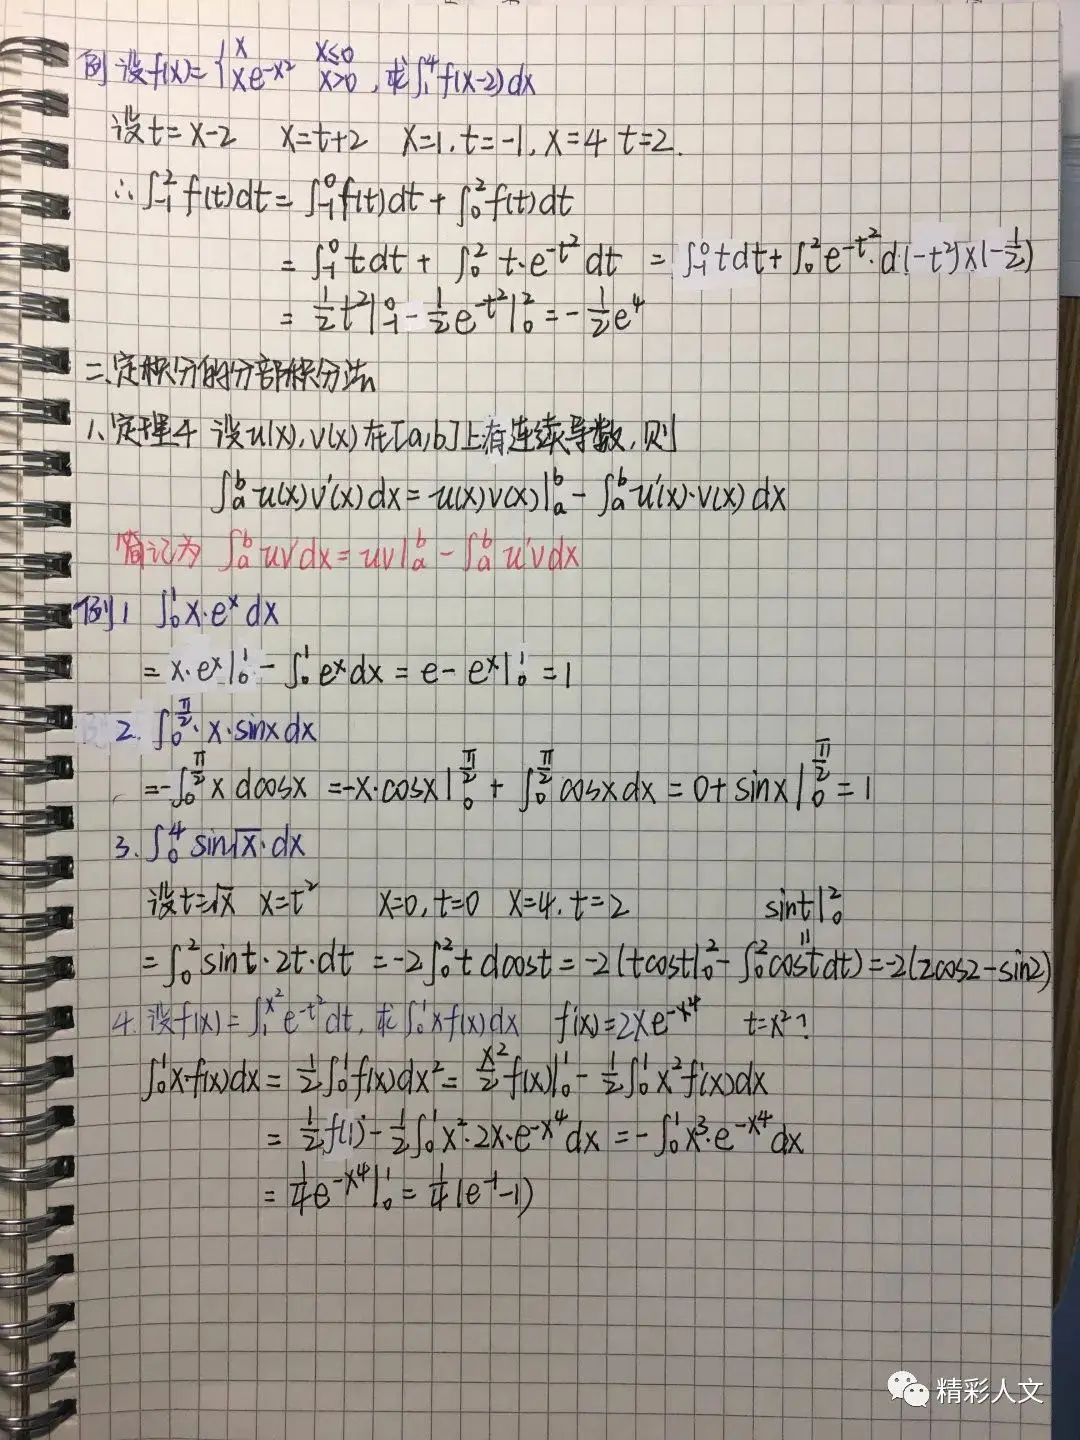 例 设f(x)={x x≤0
xe^{-x²} x>0 , 求∫₁⁴f(x-2)dx
设t=x-2 x=t+2 x=1, t=-1, x=4 t=2.
∴∫₋₁²f(t)dt=∫₋₁⁰f(t)dt+∫₀²f(t)dt
=∫₋₁⁰tdt+∫₀²t·e^{-t²}dt =∫₋₁⁰tdt+∫₀²e^{-t²}·d(-t²)×(-1/2)
=1/2t²|₋₁⁰-1/2e^{-t²}|₀²=-1/2e⁴
二、定积分的分部积分法
1、定理4 设u(x),v(x)在[a,b]上有连续导数,则
∫ₐᵇu(x)v'(x)dx=u(x)v(x)|ₐᵇ-∫ₐᵇu'(x)·v(x)dx
简记为 ∫ₐᵇuv'dx=uv|ₐᵇ-∫ₐᵇu'vdx
例1 ∫₀¹x·eˣdx
=x·eˣ|₀¹-∫₀¹eˣdx=e-eˣ|₀¹=1
2. ∫₀^{π/2}·x·sinxdx
=-∫₀^{π/2}x dcosx =-x·cosx|₀^{π/2}+∫₀^{π/2}cosxdx=0+sinx|₀^{π/2}=1
3. ∫₀⁴sin√x·dx
设t=√x x=t² x=0,t=0 x=4,t=2 sint|₀²
=∫₀²sint·2t·dt =-2∫₀²t dcost=-2(tcost|₀²-∫₀²costdt)=-2(2cos2-sin2)
4. 设f(x)=∫₁^{x²}e^{-t²}dt, 求∫₀¹xf(x)dx f'(x)=2xe^{-x⁴} t=x²?
∫₀¹x·f(x)dx=1/2∫₀¹f(x)dx²=x²/2f(x)|₀¹-1/2∫₀¹x²f'(x)dx
=1/2f(1)-1/2∫₀¹x²·2x·e^{-x⁴}dx=-∫₀¹x³·e^{-x⁴}dx
=1/4e^{-x⁴}|₀¹=1/4(e⁻¹-1)
精彩人文